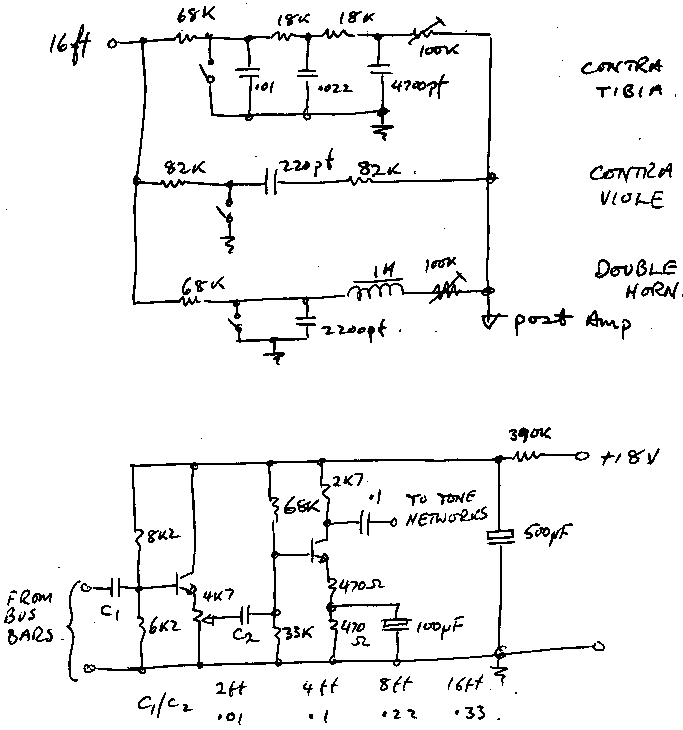 68K 18K 18K
16ft
100K
.01 .022 4700pf
CONTRA
TIBIA.
82K 220pf 82K
CONTRA
VIOLE
68K 1H 100K
DOUBLE
HORN.
2200pf.
post Amp
390K
+18V
2K7
68K
.1 TO TONE
NETWORKS
8K2
500µF
FROM
BUS
BARS.
C1
4K7
470Ω
6K2
C2
33K
470
Ω
100µF
C1/C2 2ft 4ft 8ft 16ft
.01 .1 .22 .33